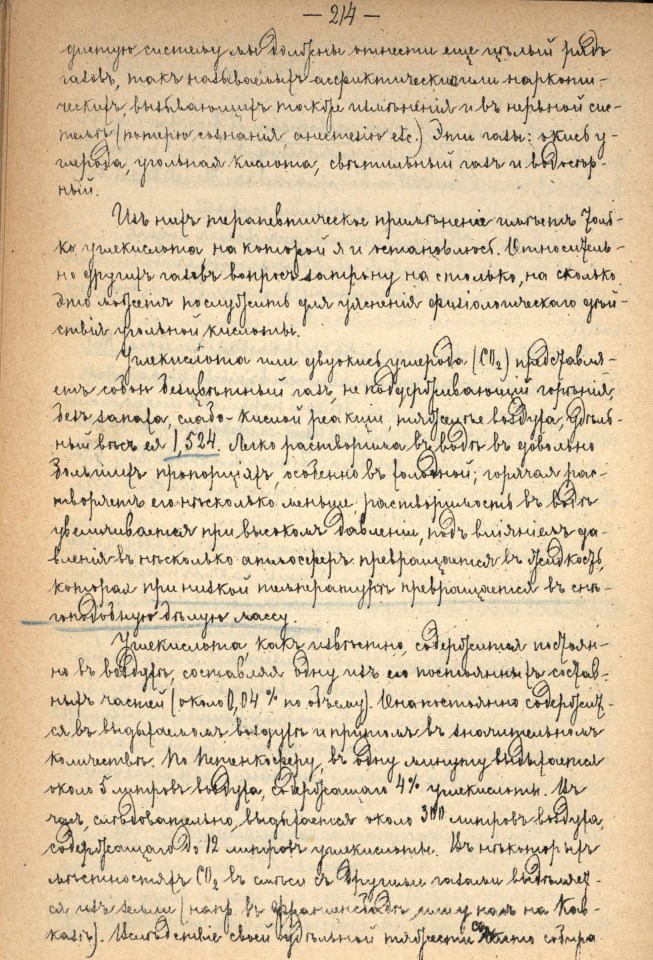 — 214 —
систему мы должны отнести еще цѣлый рядъ
газовъ, такъ называемыхъ асфиктическихъ или наркоти-
ческихъ, вызывающихъ также измѣненія и въ нервной сис-
темѣ (потерю сознанія, анестезію etc.) Эти газы: окись у-
глерода, угольная кислота, свѣтильный газъ и
ный.
Изъ нихъ терапевтическое примѣненіе имѣетъ толь-
ко углекислота на которой я и остановлюсь. Относитель-
но другихъ газовъ вопросъ затрону на столько, на сколько
это можетъ послужить для уясненія физіологическаго дѣй-
ствія угольной кислоты.
Углекислота или двуокись углерода (CO₂) представля-
етъ собой безцвѣтный газъ, не поддерживающій горѣнія,
безъ запаха, слабо-кислой реакціи, тяжелѣе воздуха, удѣль-
ный вѣсъ ея 1,524. Легко растворима въ водѣ въ довольно
большихъ пропорціяхъ, особенно въ холодной; горячая рас-
творяетъ его нѣсколько меньше, растворимость въ водѣ
увеличивается при высокомъ давленіи, подъ вліяніемъ да-
вленія въ нѣсколько атмосферъ превращается въ жидкость,
которая при низкой температурѣ превращается въ снѣ-
гоподобную бѣлую массу.
Углекислота, какъ извѣстно, содержится постоян-
но въ воздухѣ, составляя одну изъ его постоянныхъ состав-
ныхъ частей (около 0,04 % по объему). Она постоянно содержит-
ся въ выдыхаемомъ воздухѣ и притомъ въ значительномъ
количествѣ. По Петенкоферу, въ одну минуту выдыхается
около 5 литровъ воздуха, содержащаго 4% углекислоты. Въ
часъ, слѣдовательно, выдыхается около 300 литровъ воздуха,
содержащаго до 12 литровъ углекислоты. Въ нѣкоторыхъ
мѣстностяхъ CO₂ въ смѣси съ другими газами выдѣляет-
ся изъ земли (напр. въ у насъ на Кав-
казѣ). Вслѣдствіе своей удѣльной тяжести часто собира-